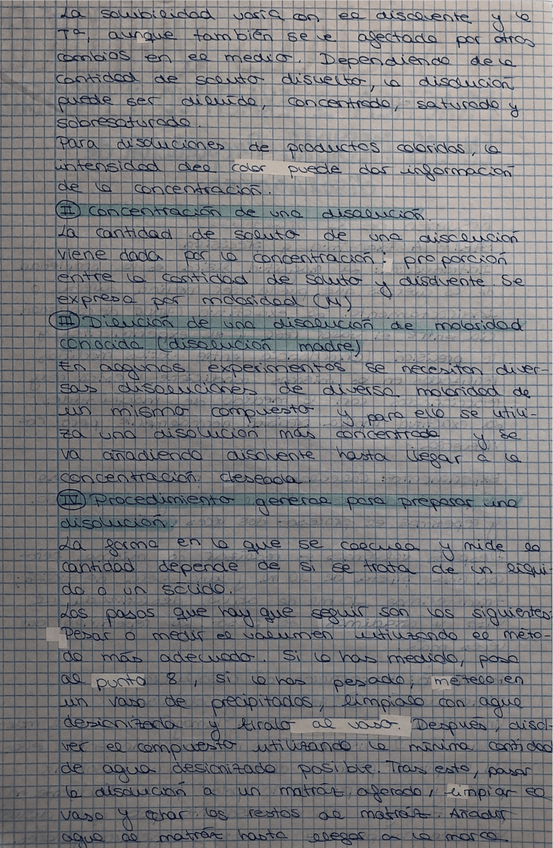 La solubilidad varía con el disolvente y la
Tª, aunque también se ve afectada por otros
cambios en el medio. Dependiendo de la
cantidad de soluto disuelto, la disolución
puede ser diluida, concentrada, saturada y
sobresaturada.
Para disoluciones de productos coloridos, la
intensidad del color puede dar información
de la concentración.
II Concentración de una disolución.
La cantidad de soluto de una disolución
viene dada por la concentración: proporción
entre la cantidad de soluto y disolvente. Se
expresa por molaridad (M)
III Dilución de una disolución de molaridad
conocida (disolución madre)
En algunos experimentos se necesitan diver-
sas disoluciones de diversa molaridad de
un mismo compuesto y para ello se utili-
za una disolución más concentrada y se
va añadiendo disolvente hasta llegar a la
concentración deseada.
IV Procedimiento general para preparar una
disolución.
La forma en la que se calcula y mide la
cantidad depende de si se trata de un líqui-
do o un sólido.
Los pasos que hay que seguir son los siguientes
Pesar o medir el volumen utilizando el méto-
do más adecuado. Si lo has medido, pasa
al punto 8, si lo has pesado, mételo en
un vaso de precipitados, límpialo con agua
desionizada y tíralo al vaso. Después, disol-
ver el compuesto utilizando la mínima cantidad
de agua desionizada posible. Tras esto, pasar
la disolución a un matraz aforado, limpiar el
vaso y echar los restos al matraz. Añadir
agua al matraz hasta llegar a la marca